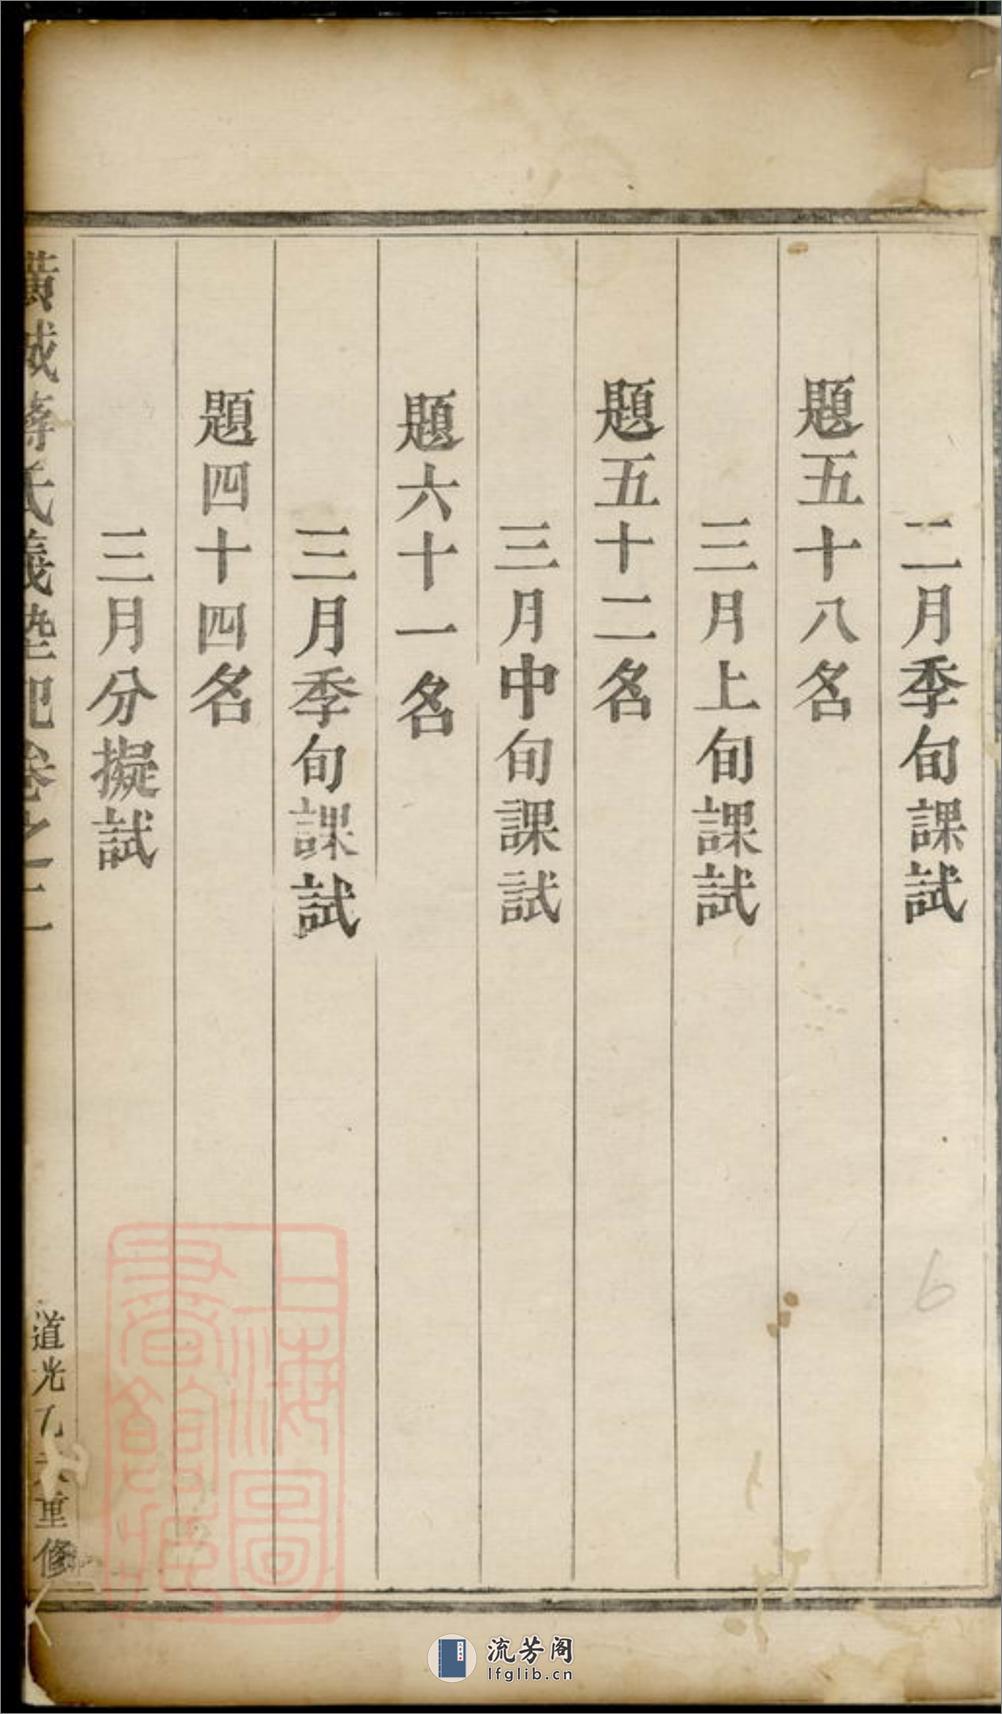 二月季旬課試
題五十八名
三月上旬課試
題五十二名
三月中旬課試
題六十一名
三月季旬課試
題四十四名
三月分擬試
氏義塾 卷之二
道光 重修
上海圖
書館藏
流芳阁
lfglib.cn
6